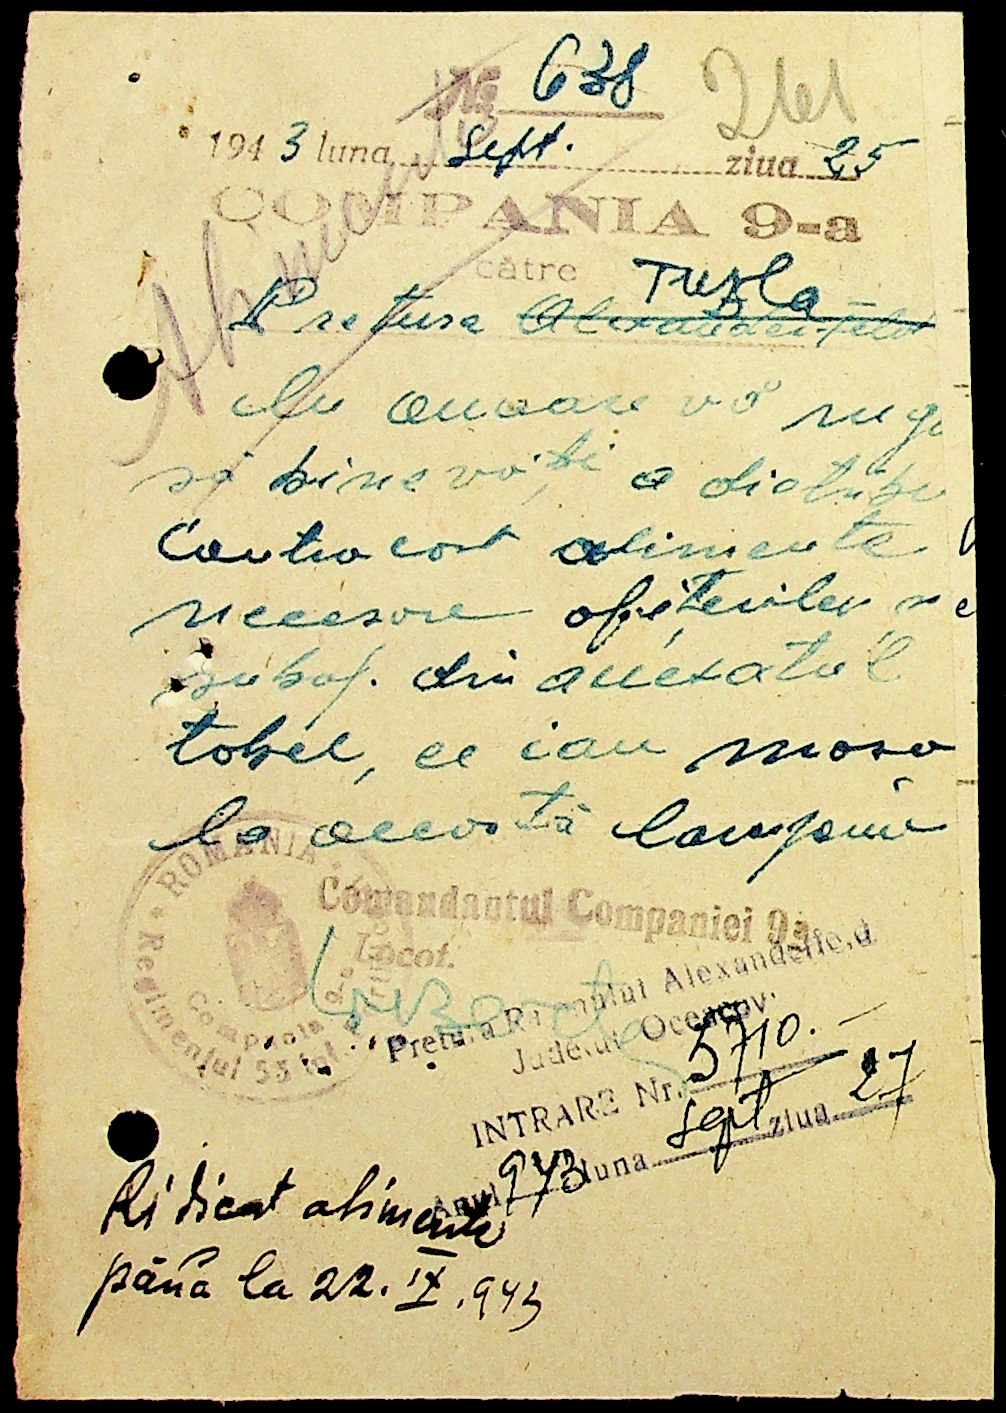 No 638
261
1943 luna Sept. ziua 25
COMPANIA 9-a
către
Pretura Alexanderfeld Tuzla
Cu onoare vă rugă
să binevoiți a distribu
Contra cost alimente
necesare ofițerilor
subof. din anexatul
tabel, ce iau masa
la această Compani
ROMÂNIA
Regimentul 33 Inf.
Compania 9-a
Comandantul Companiei 9a
Locot.
Pretura Raionului Alexanderfeld
Județul Oceacov
INTRARE Nr. 5710.
Anul 943 luna Sept ziua 27
Ridicat alimente
până la 22. IX .943